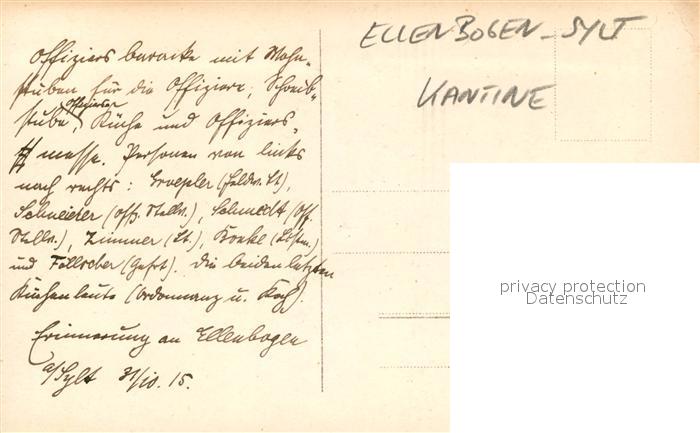 Offiziersbaracke mit Wohn-
stuben für die Offiziere, Schreib-
stube, Offiziers Küche und Offiziers-
messe. Personen von links
nach rechts: (Feldw. Lt),
Schneider (Off. Stellv.), Schmedt (Off.
Stellv.), Zimmer (Lt.),
und Föllscher (Gefrt). Die beiden letzten
Küchenleute (Ordonnanz u. Koch).
Erinnerung an Ellenbogen
a/Sylt 31/10. 15.
ELLENBOGEN - SYLT
KANTINE
privacy protection
Datenschutz